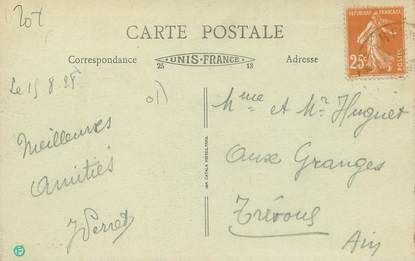 20f
CARTE POSTALE
Correspondance
UNIS-FRANCE
25 13
Adresse
REPUBLIQUE FRANÇAISE
25c
POSTES
Le 15.8.28
Mme et Mr Huguet
Aux Granges
Trévoux
Ain
Meilleures
Amitiés
J Perret